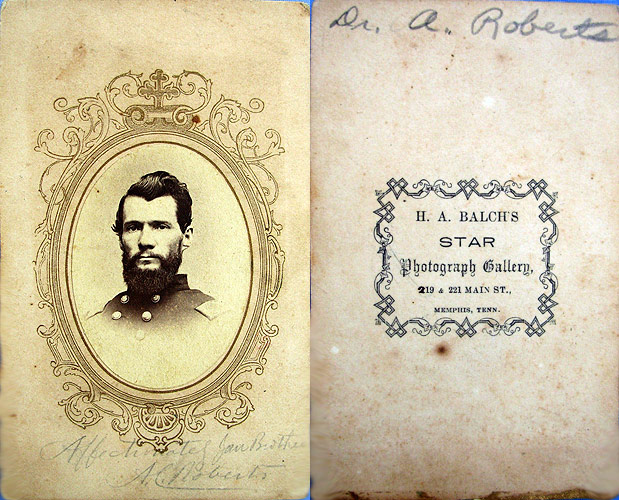 Affectionately your Brother
A. C. Roberts
Dr. A. Roberts
H. A. BALCH'S
STAR
Photograph Gallery,
219 & 221 MAIN ST.,
MEMPHIS, TENN.